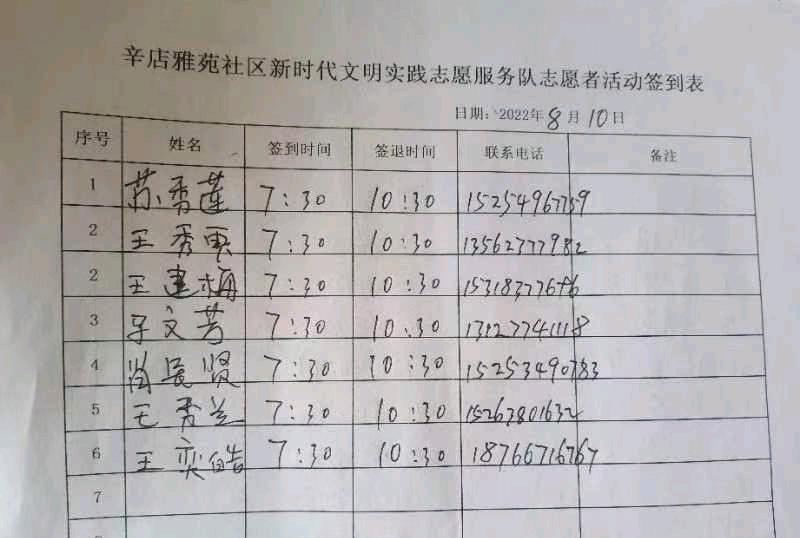 辛店雅苑社区新时代文明实践志愿服务队志愿者活动签到表
日期：2022年8月10日
序号 姓名 签到时间 签退时间 联系电话 备注
1 苏秀莲 7:30 10:30 15254967759
2 王秀 7:30 10:30 13562377982
2 王建梅 7:30 10:30
3 文芳 7:30 10:30 13127741118
4 贤 7:30 10:30 15253490783
5 王秀兰 7:30 10:30 15263801632
6 王奕皓 7:30 10:30 18766716767
7